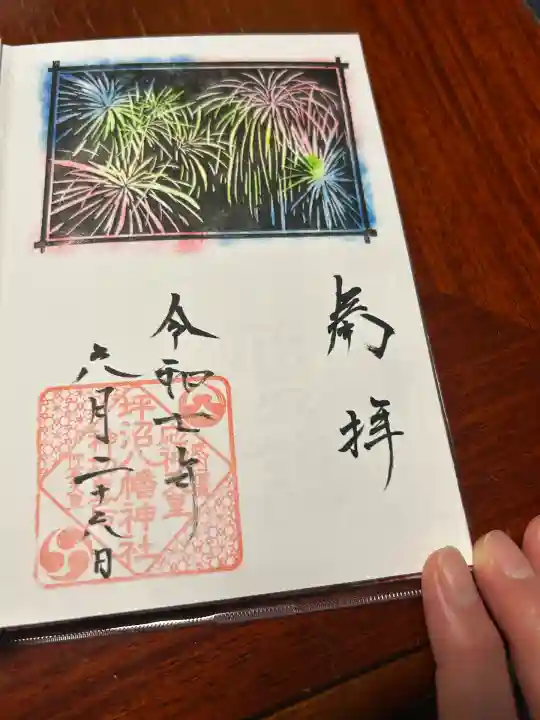 奉拝
令和七年
六月二十六日
坪沼八幡神社